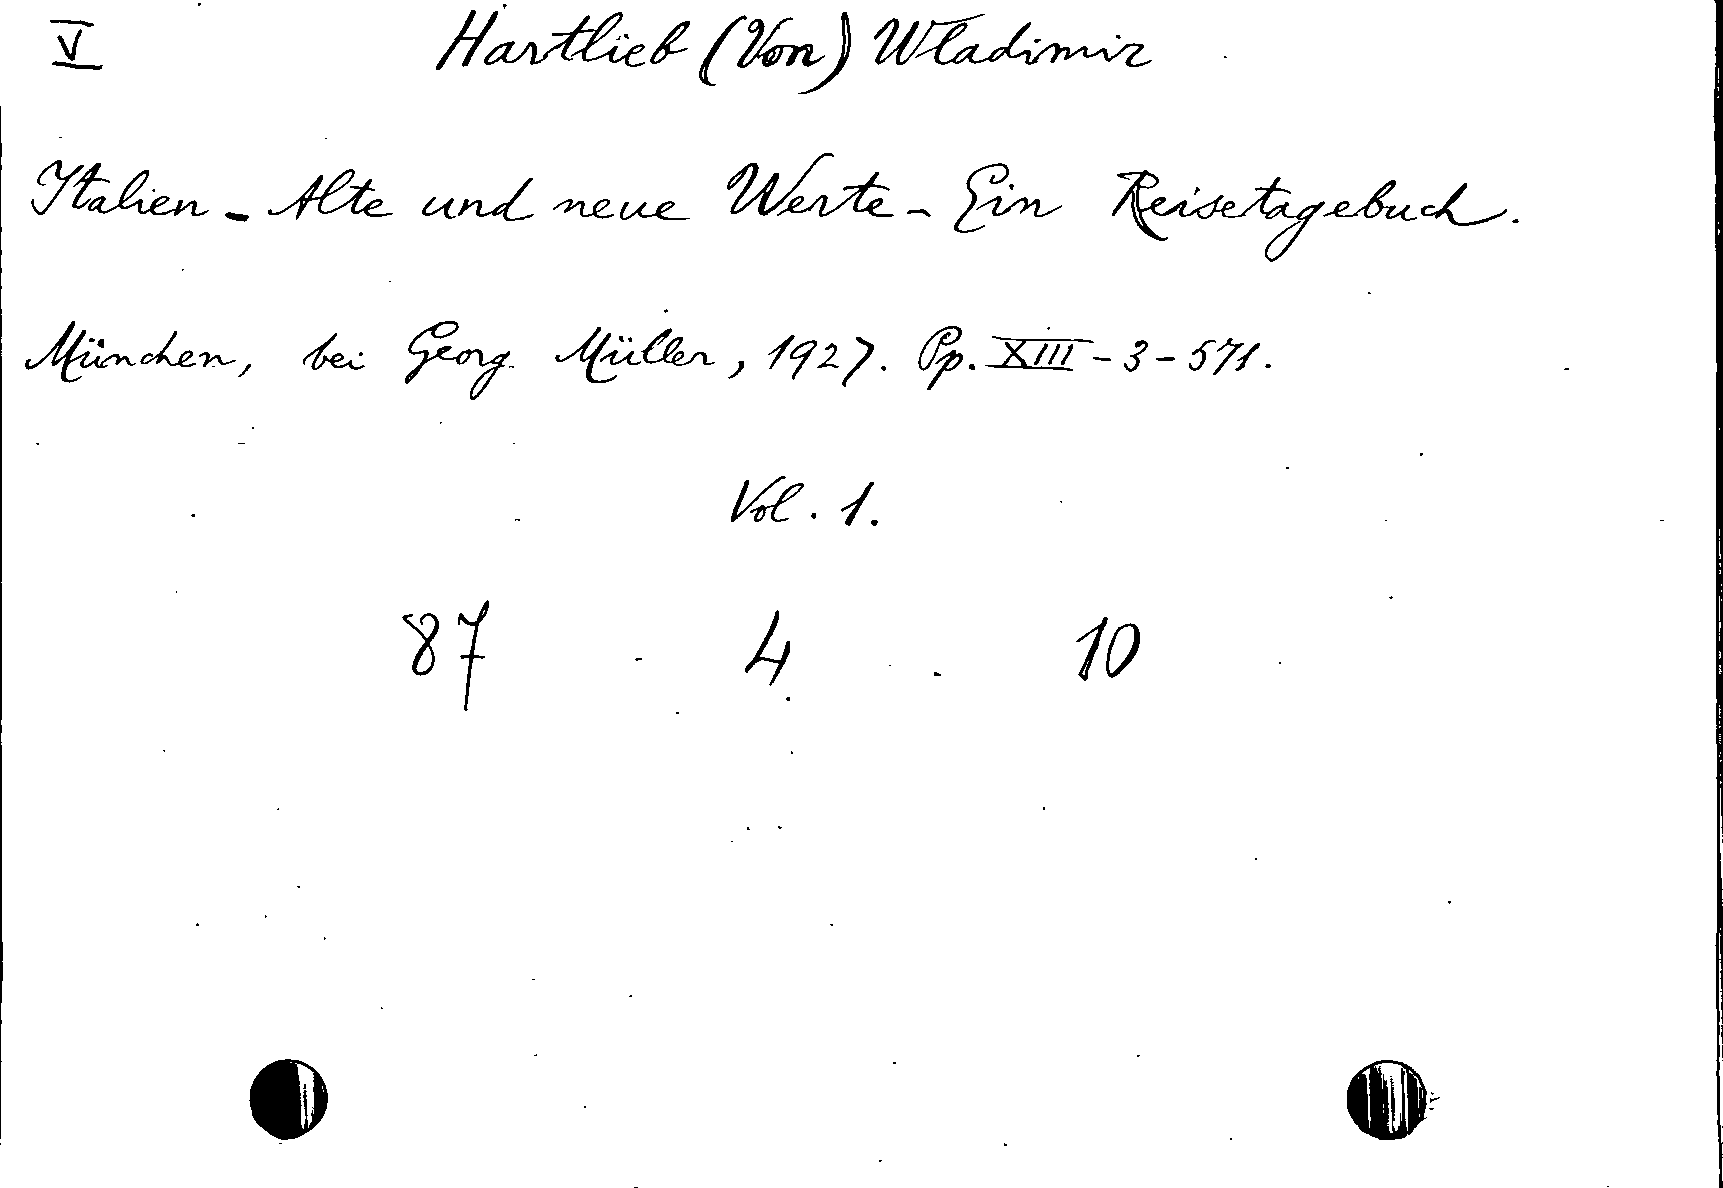 V Hartlieb (Von) Wladimir
Italien - Alte und neue Werte - Ein Reisetagebuch.
München, bei Georg Müller, 1927. Pp. XIII - 3 - 571.
Vol. 1.
87 - 4 - 10